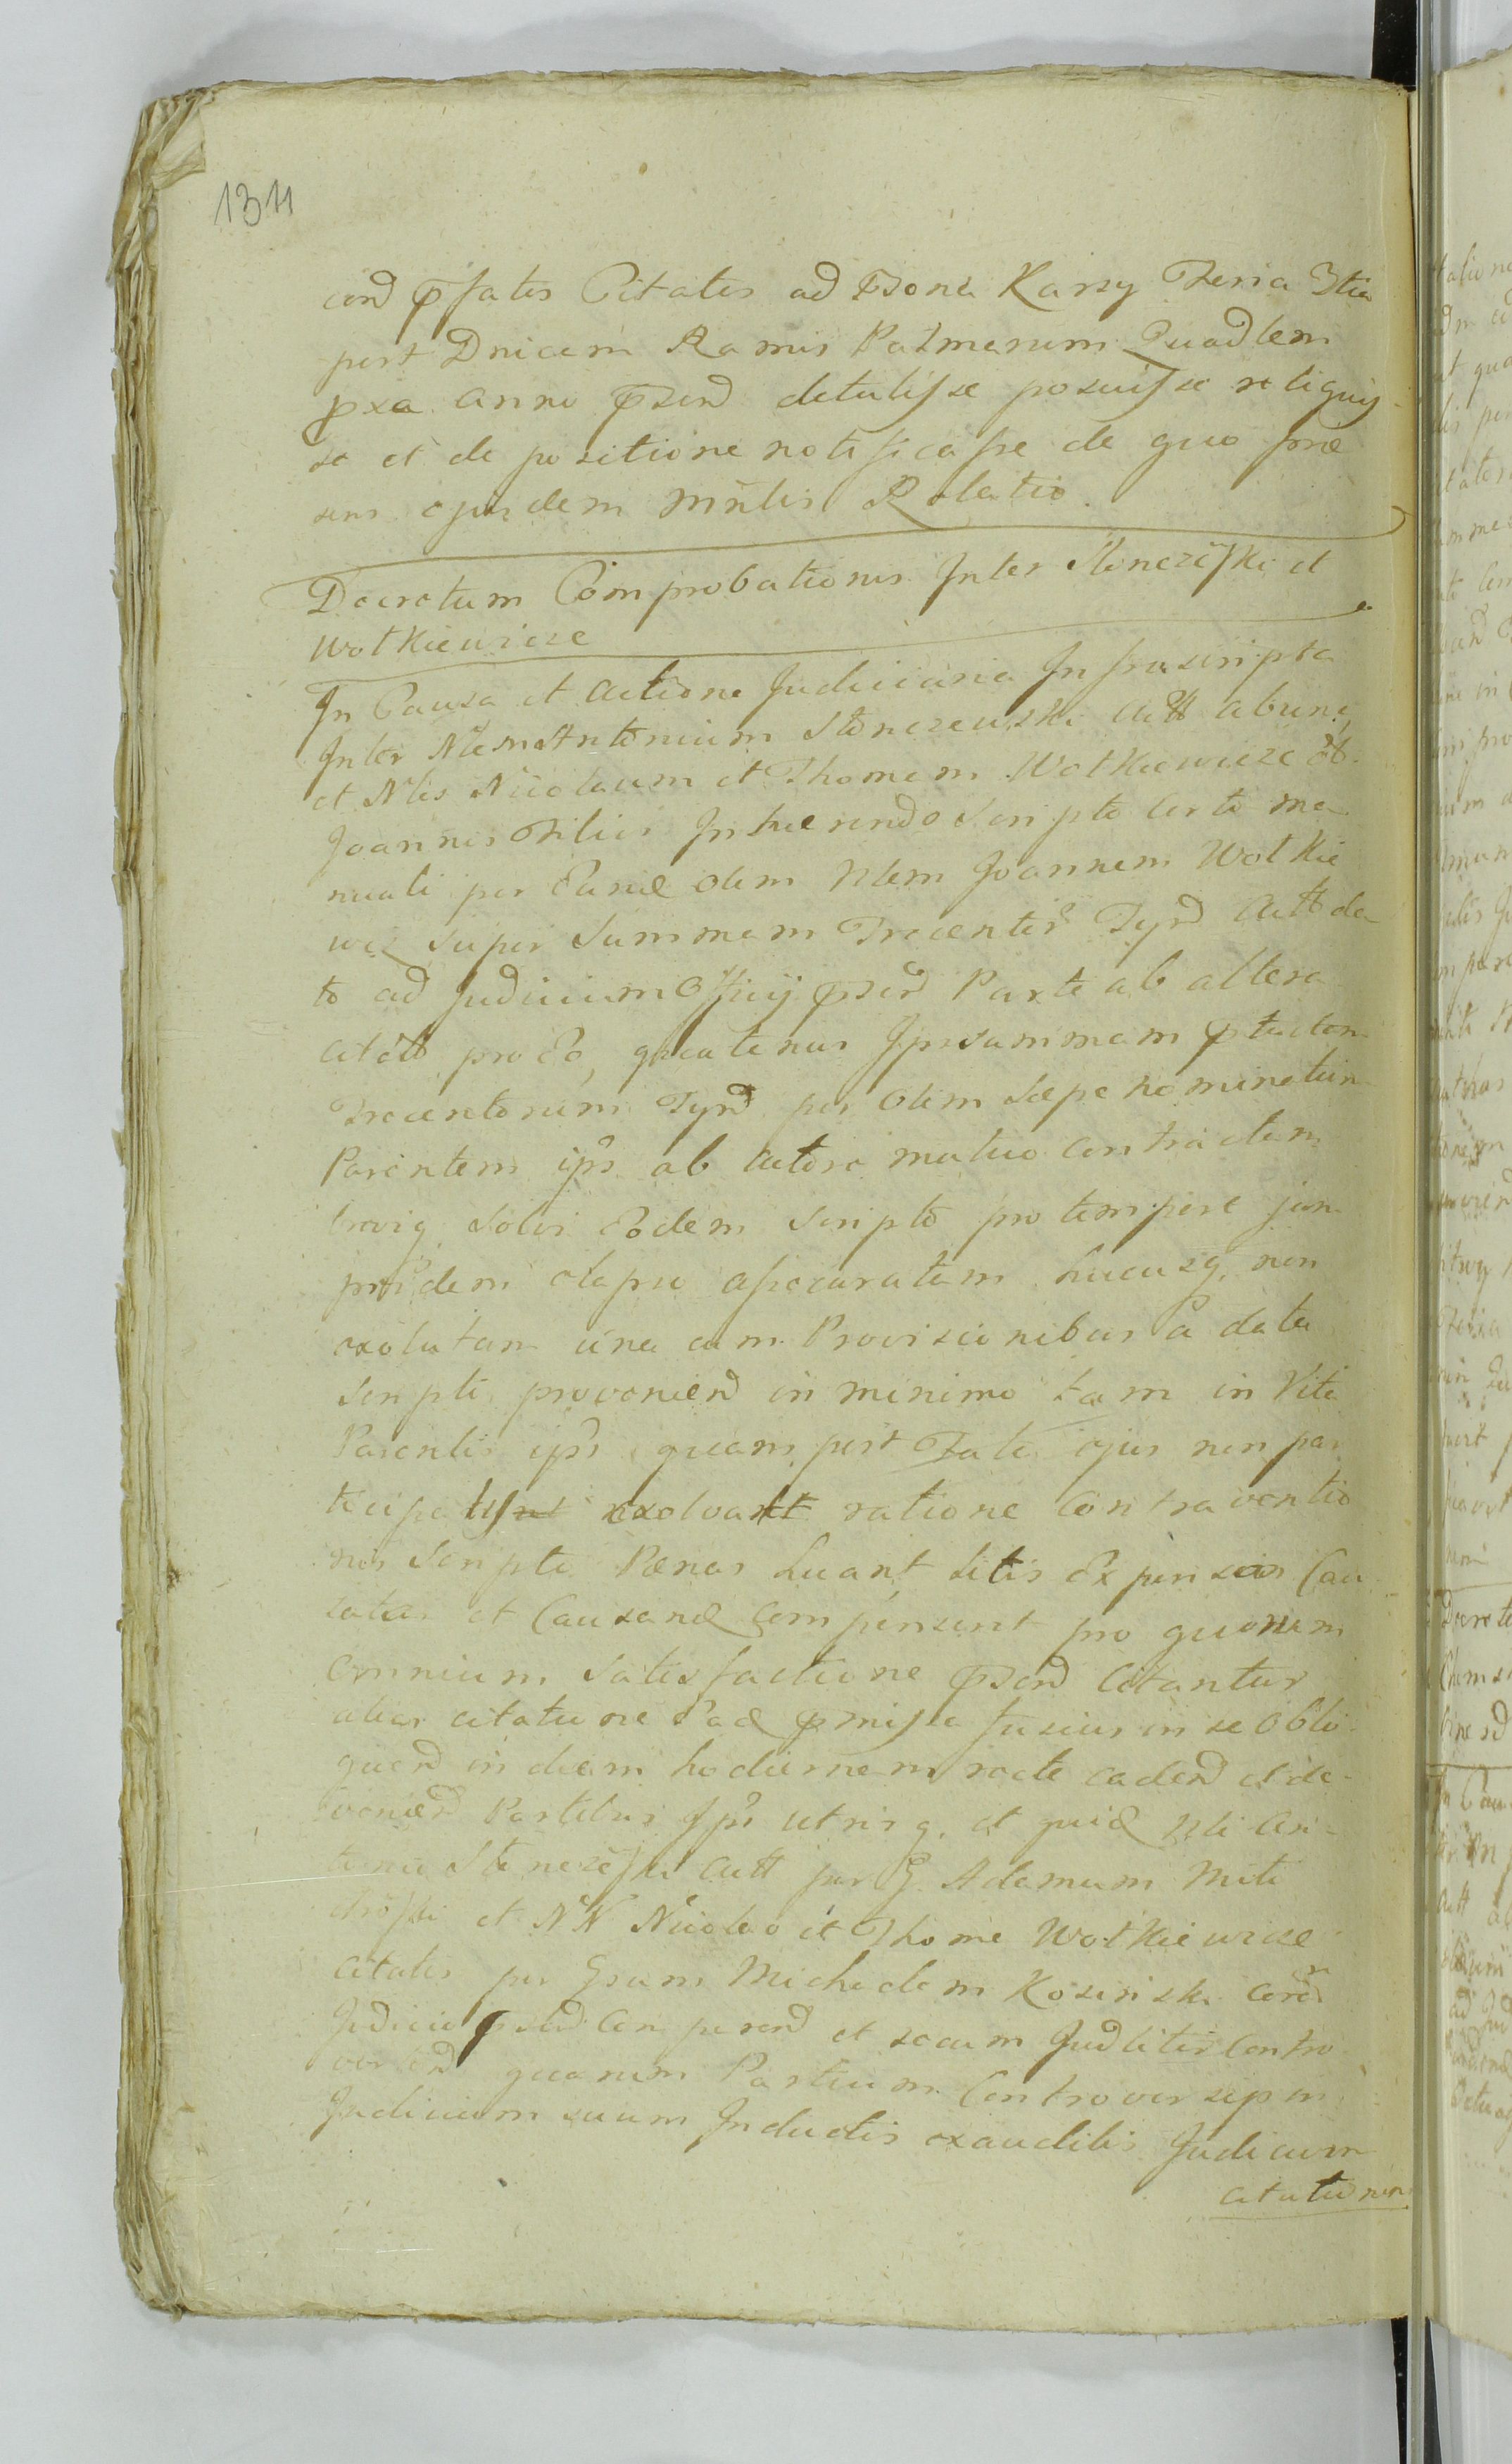 1311
cond pfatis Citatis ad Bona Karsy Feria 3tia
post Dnicam Ramis Palmarum Quadlem
pxa anni pnd detulisse posuisse reliquis-
se et de positione notificasse de quo prae
sens ejusdem Mnlis Relatio.
Decretum Comprobationis Inter Stenczeski et
Wotkiewicze
In Causa et Actione Judiciaria Infrascripta
Inter Nlem Antonium Stonczewski Actt abunc
et Nlis Nicolaum et Thomam Wotkiewicze
Joannis Filios Inhaerendo Scripto certo ma
nuali per Eund olim Nlem Joannem Wotkie
wicz super Summam Trecentor Tynf Actt da
to ad Judicium Officij pnd Parte ab altera
citatt pro Eo, quatenus Ipsi summam
Trecentorum Tynf per olim Saepe nominatum
Parentem ipsor ab Actore mutuo contractam
brevig solvi Eodem scripto pro tempore jam
pridem elapso assecuratam hucusq non
exolutam una cum Provisionibus a data
Scripti provenien in minimo tam in Vita
Parentis ipsor quam post Fata ejus non par
ticipatis exolvant ratione contraventio
nis Scripto Paenas luant litis Expensas Cau
satas et Causand compensent pro quorum
omnium satisfactione pnd Citantur
alias citatione Pad pmissa fusius in se oblo
quend in diem hodiernam recte cadend et de
veniend Partibus Ipsis utrisq. et quid Nli An-
tonio Stenczeski Actt per G. Adamum Mito
droski et NN Nicolao et Thoma Wotkiewicze
citatis per Gsum Michaelem Kosinski coram
Judicio pnd comperend et secum Judliter Contro
vertend quarum Partium Controversijs in
Judicium suum Inductis exauditis Judicium
citationem